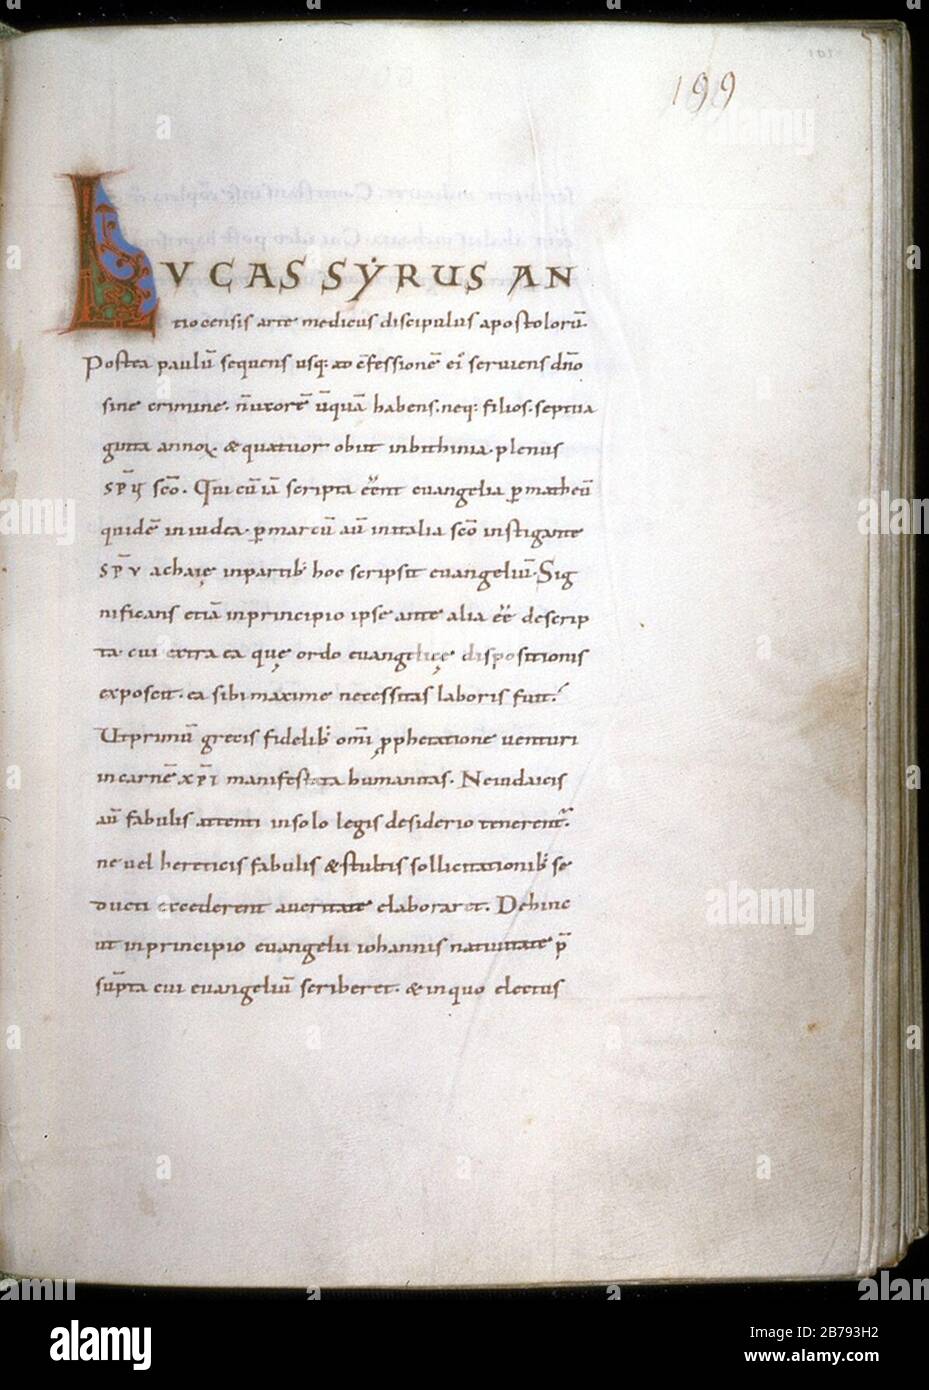 199
LVCAS SẎRUS AN
tiocensis arte medicus discipulus apostolorū.
Postea paulū sequens usq; ad c̄fessionē ei' seruiens dn̄o
sine crimine. n̄ uxorē ūquā habens. neq; filios. septua
ginta annoꝝ. & quatuor obiit in bithinia. plenus
sp̄u sc̄o. Qui cū iā scripta eēnt euangelia ꝑ matheū
quidē in iudea. ꝑ marcū aū in italia sc̄o instigante
sp̄u achaię in partib; hoc scripsit euangeliū. Sig
nificans etiā in principio ipse ante alia eē descrip
ta. cui extra ea quę ordo euangelicę dispositionis
exposcit. ea sibi maxime necessitas laboris fuit.
Ut primū grecis fidelib; omī ꝓphetatione uenturi
in carnē xp̄i manifestata humanitas. Ne iudaicis
aū fabulis attenti in solo legis desiderio tenerent.
ne uel hereticis fabulis & stultis sollicitationib; se
ducti excederent a ueritate elaboraret. Dehinc
ut in principio euangelii iohannis natiuitate p̄
sūpta cui euangeliū scriberet. & in quo electus
alamy
Image ID: 2B793H2
www.alamy.com